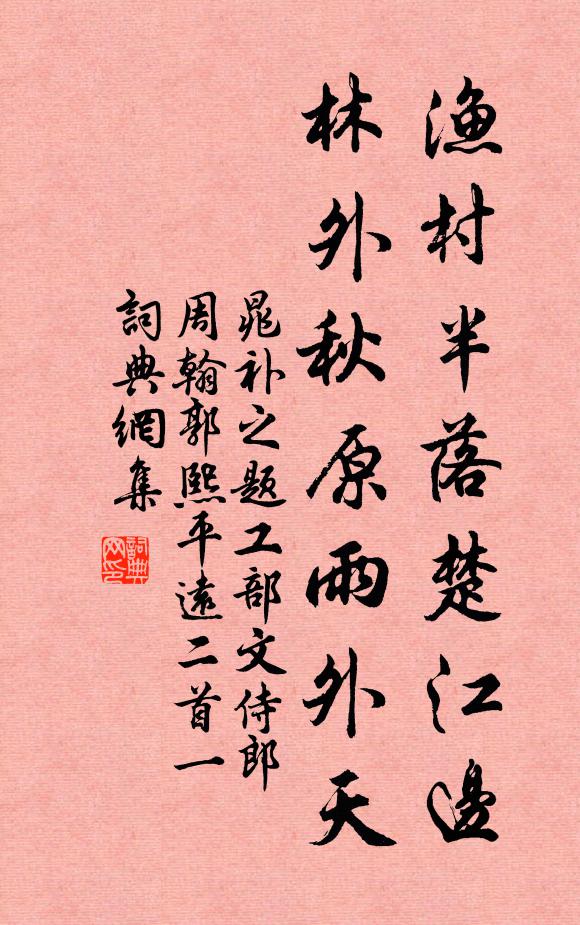 渔村半落楚江邊
林外秋原雨外天
晁补之题工部文侍郎
周翰郭熙平遠二首一
詞典網集
詞典网印